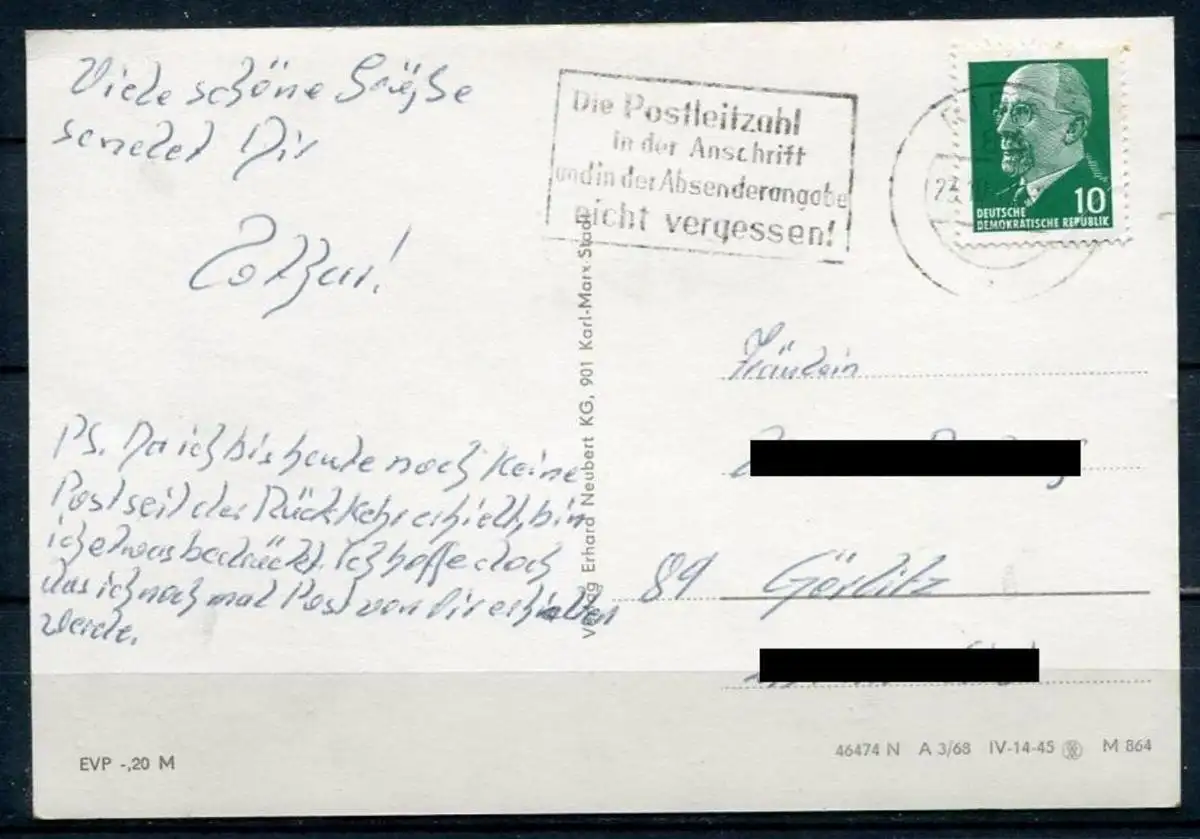 Viele schöne Grüße
sendet Dir
PS. Da ich bis heute noch keine
Post seit der Rückkehr erhielt, bin
ich etwas bedrückt. Ich hoffe doch
das ich noch mal Post von Dir erhalten
werde.
Die Postleitzahl
in der Anschrift
und in der Absenderangabe
nicht vergessen!
10
DEUTSCHE
DEMOKRATISCHE REPUBLIK
Verlag Erhard Neubert KG, 901 Karl-Marx-Stadt
Fräulein
89 Görlitz
EVP -,20 M
46474 N A 3/68 IV-14-45 M 864